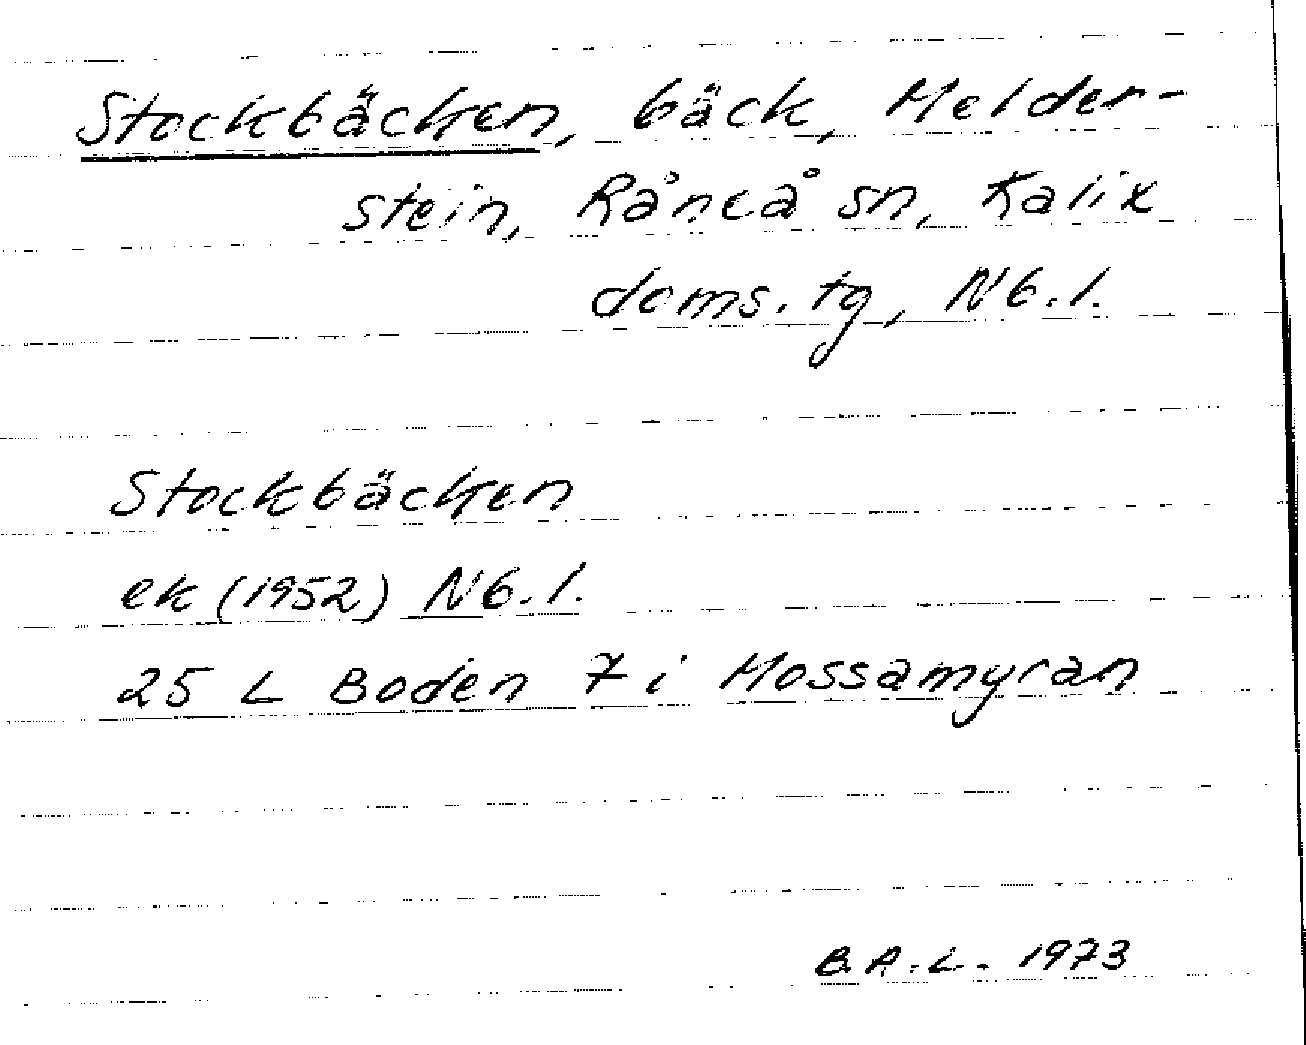 Stockbäcken, bäck, Melder-
stein, Råneå sn, Kalix
doms. tg, Nb. l.
Stockbäcken
ek (1952) Nb. l.
25 L Boden 7 i Mossamyran
B. A. L. 1973